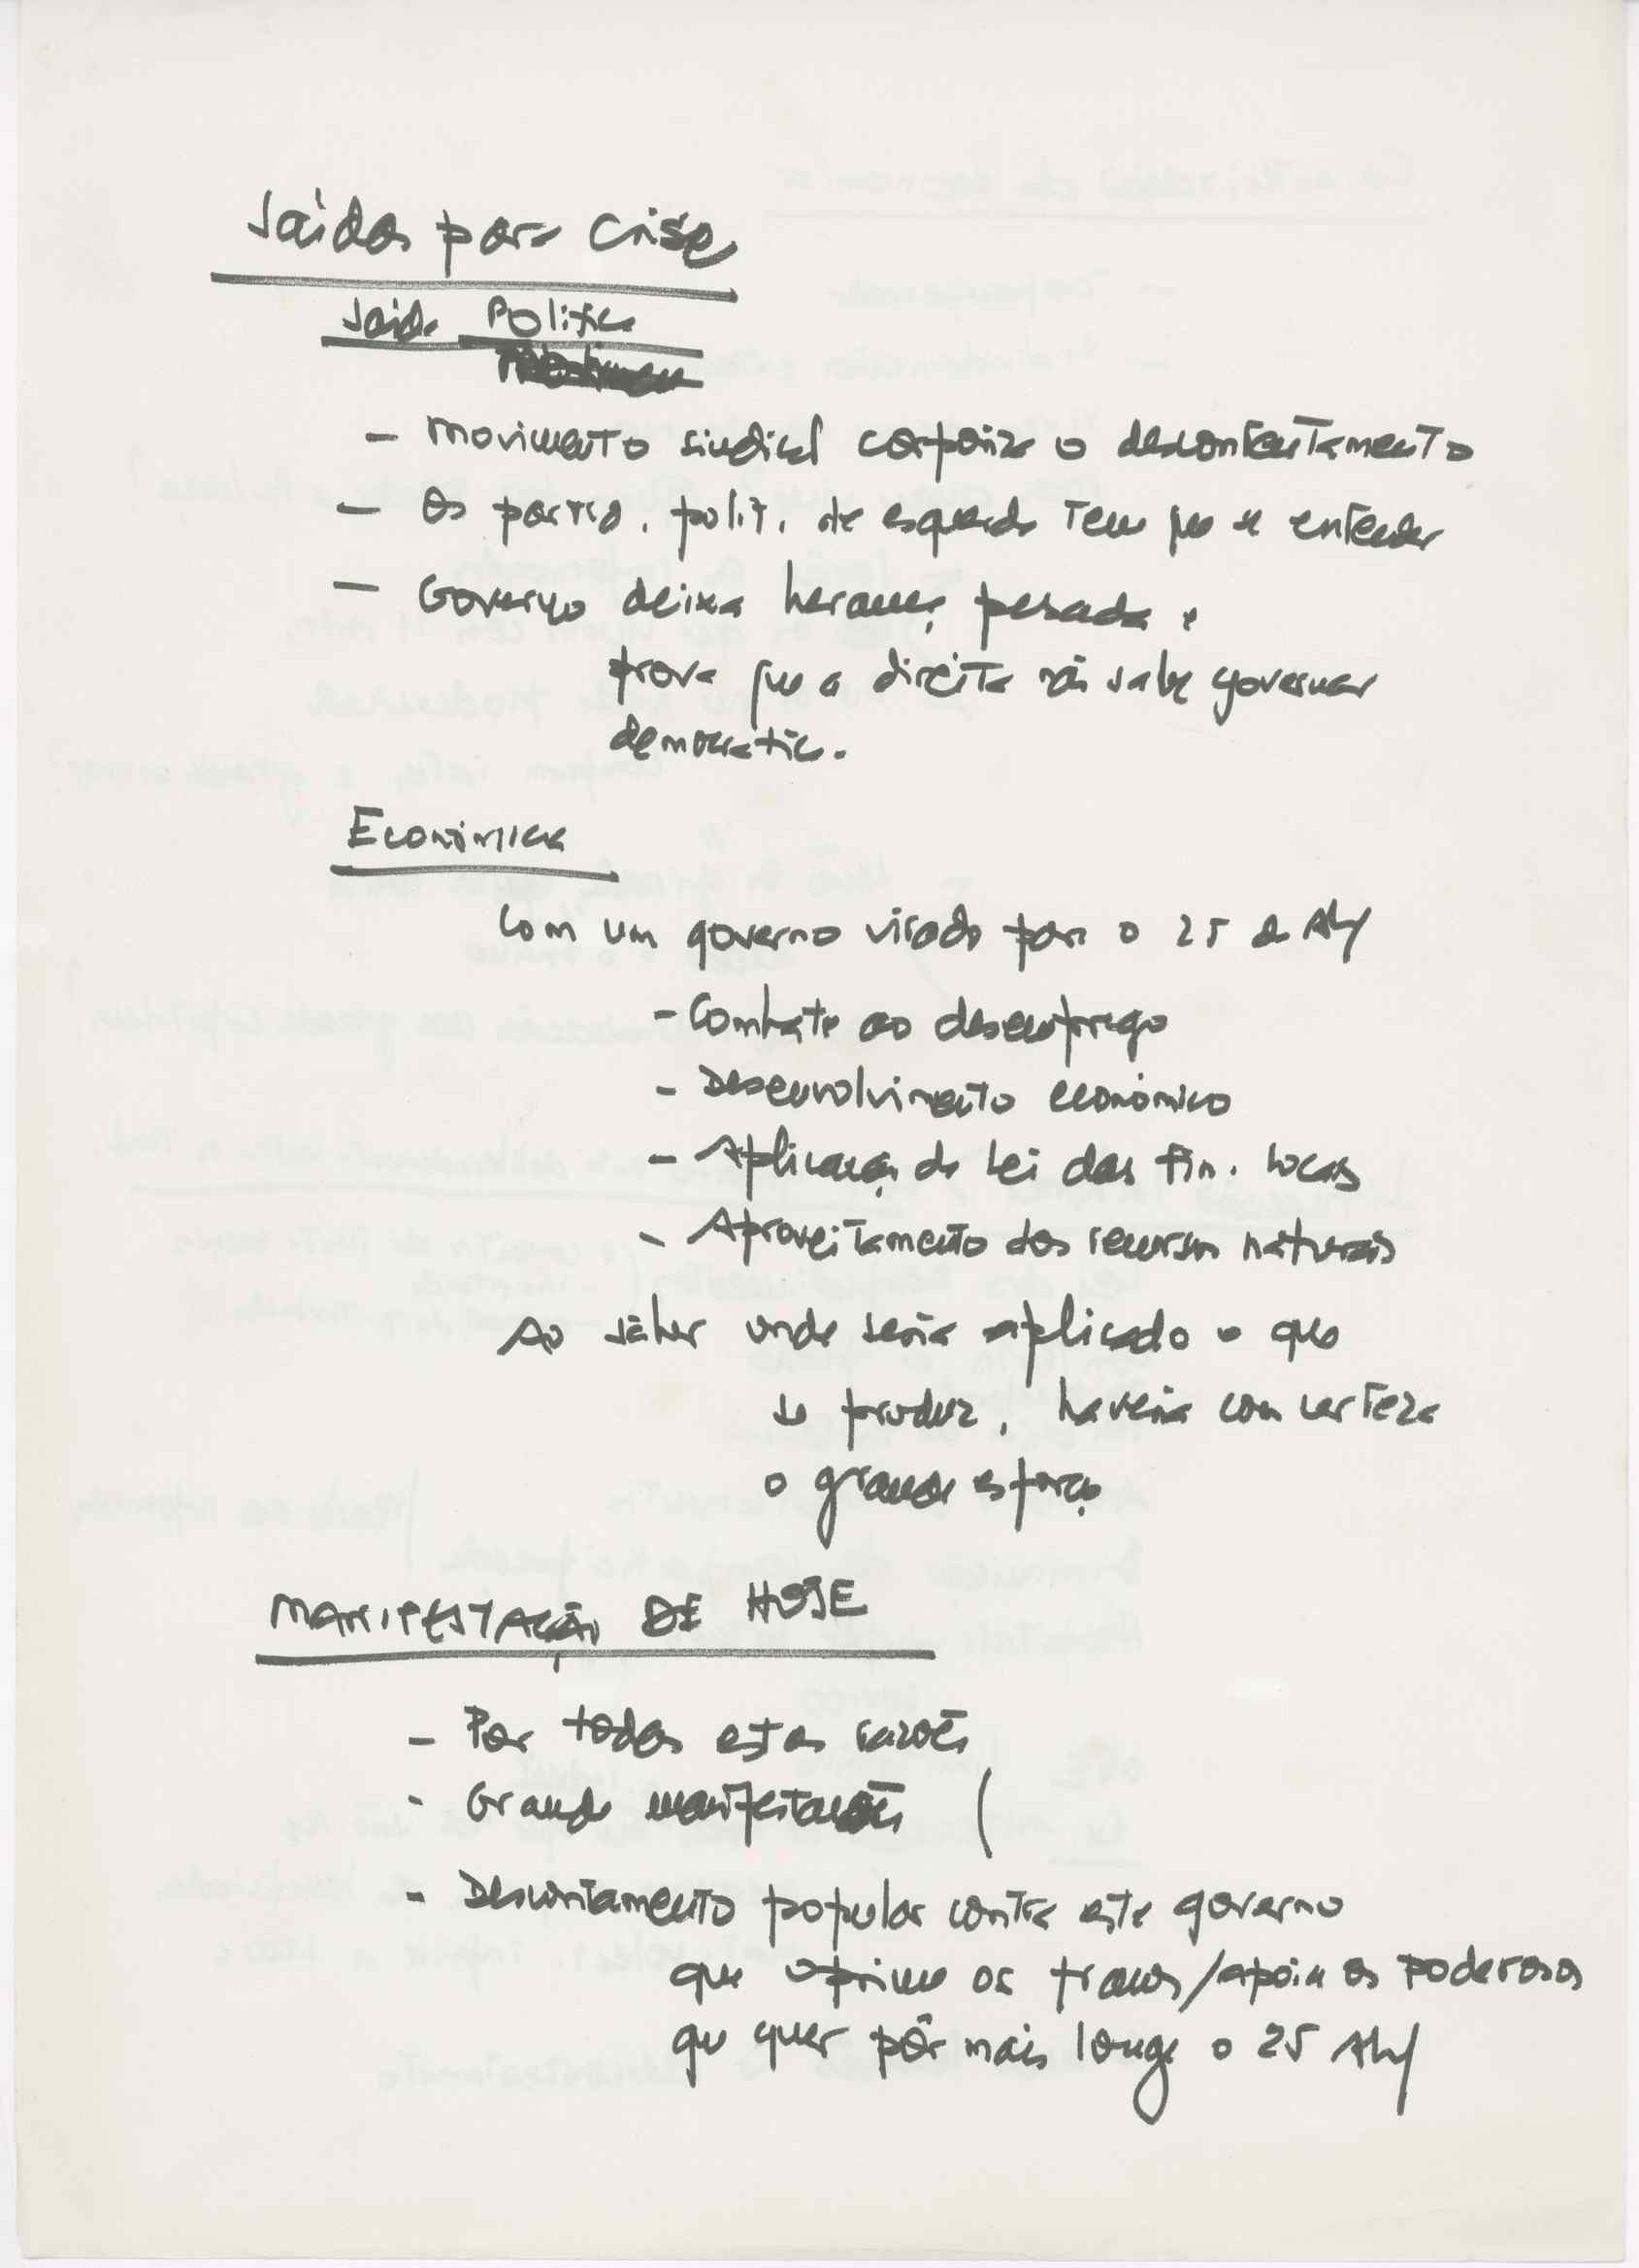 Saídas para crise
Saída Política
- Movimento sindical corporiza o descontentamento
- Os partid. polit. de esquerda tem que se entender
- Governo deixa herança pesada e
prova que a direita não sabe governar
democratic.
Económica
Com um governo virado para o 25 de Abril
- Combate ao desemprego
- Desenvolvimento económico
- Aplicação da Lei das Fin. Locais
- Aproveitamento dos recursos naturais
Ao saber onde seria aplicado o que
se produz, haveria com certeza
o grande esforço
MANIFESTAÇÃO DE HOJE
- Por todas estas razões
- Grande manifestações (
- Descontamento popular contra este governo
que oprime os fracos/apoia os poderosos
que quer pôr mais longe o 25 Abril